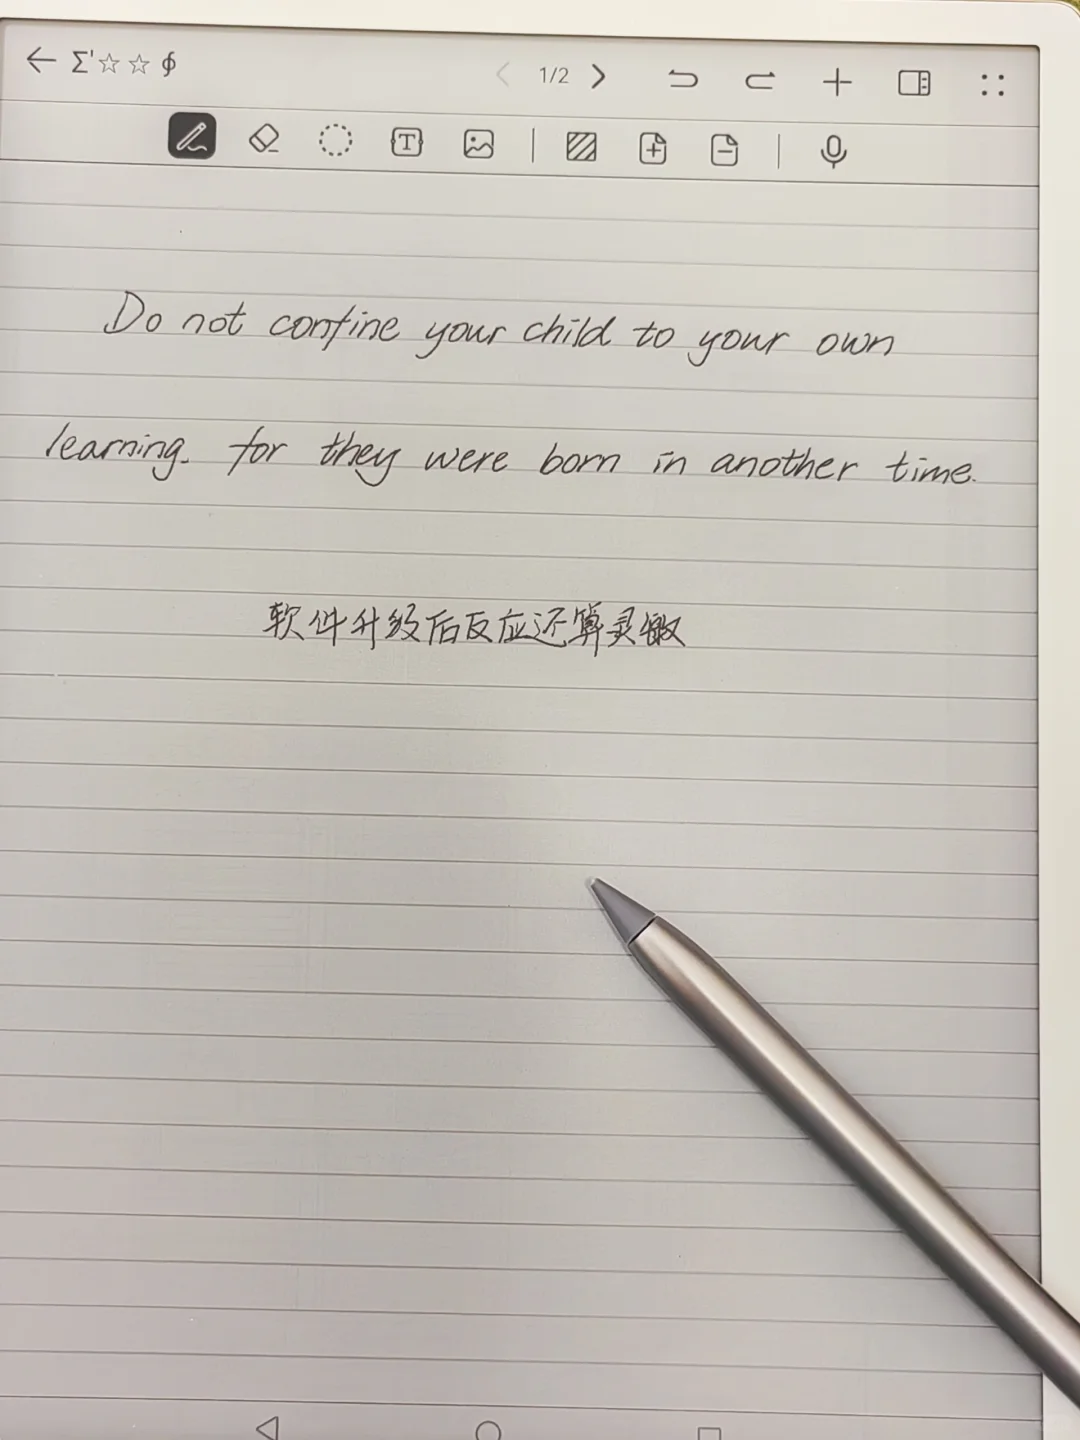 Σ'☆☆∮
1/2
Do not confine your child to your own
learning. for they were born in another time.
软件升级后反应还算灵敏